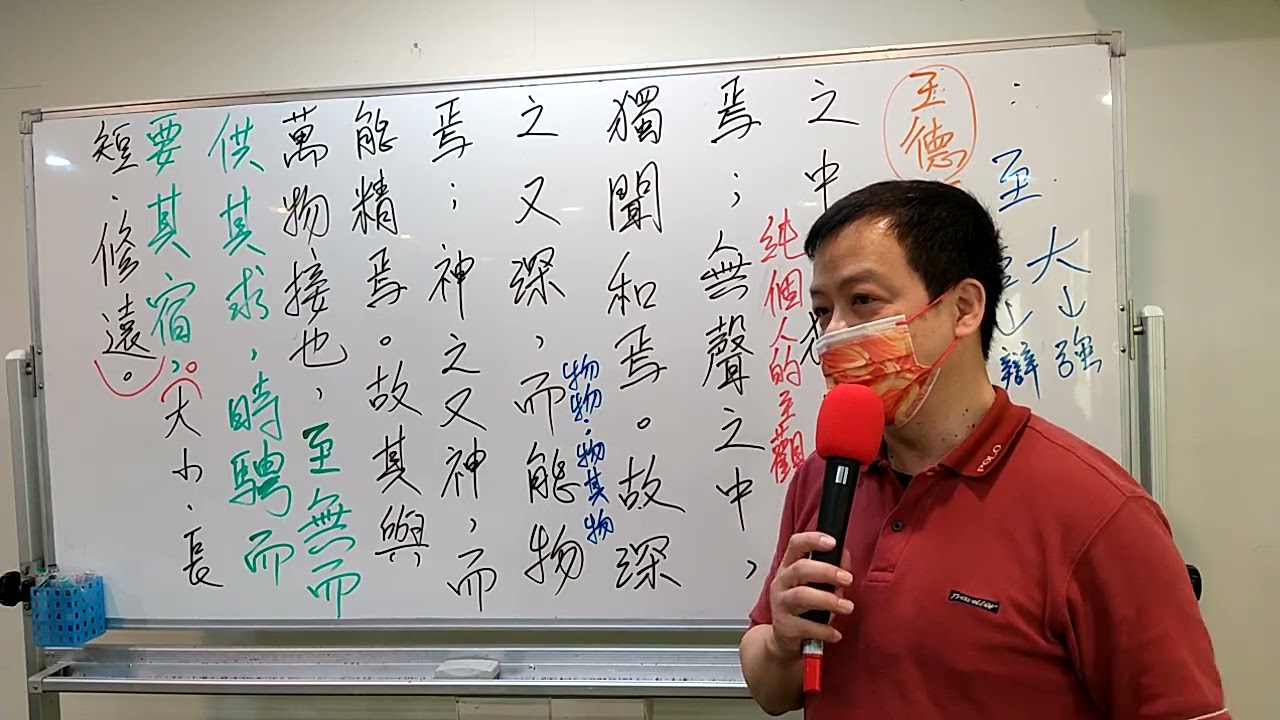 大↓強
至
↓辯
王德
之中
純個人的主觀
焉；無聲之中，
獨聞和焉。故深
物物，物其物
之又深，而能物
焉；神之又神，而
能精焉。故其與
萬物接也，至無而
供其求，時騁而
要其宿，。大小、長
短、修遠。
POLO